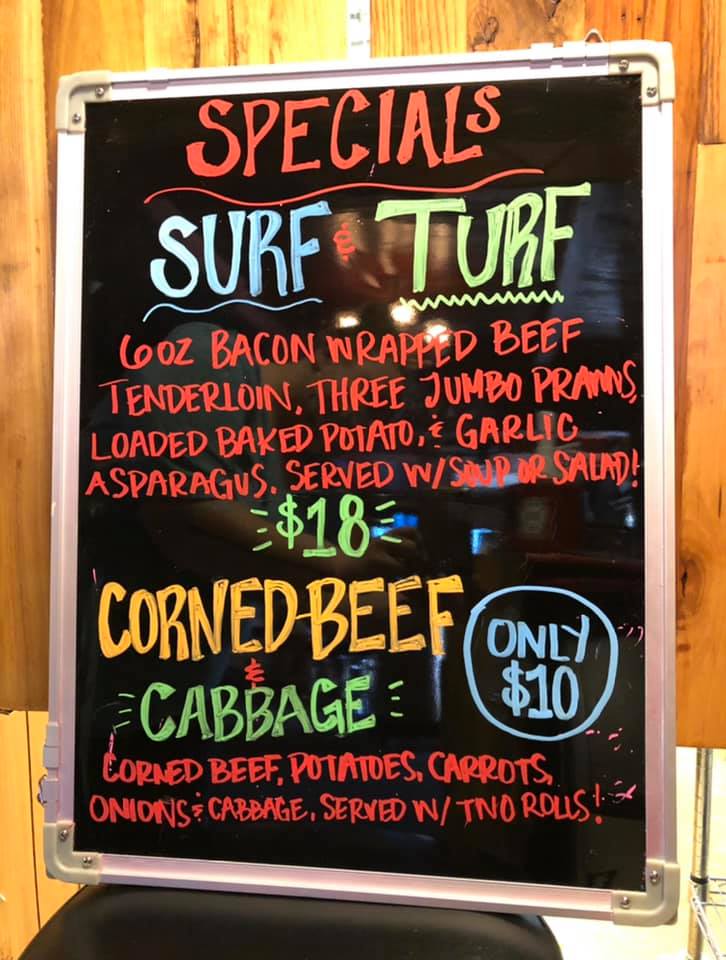 SPECIALS
SURF & TURF
6OZ BACON WRAPPED BEEF
TENDERLOIN, THREE JUMBO PRAWNS,
LOADED BAKED POTATO, & GARLIC
ASPARAGUS. SERVED W/SOUP OR SALAD!
$18
CORNED BEEF
&
CABBAGE
ONLY
$10
CORNED BEEF, POTATOES, CARROTS,
ONIONS & CABBAGE, SERVED W/ TWO ROLLS!